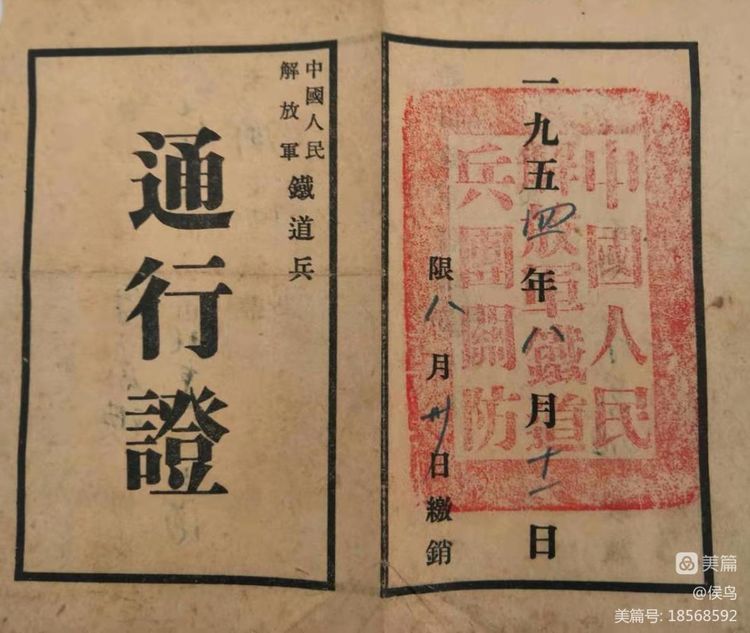 中國人民
解放軍鐵道
兵團關防
一九五四年八月十一日
限八月卅日繳銷
中國人民
解放軍
鐵道兵
通行證
美篇
@侯鸟
美篇号: 18568592